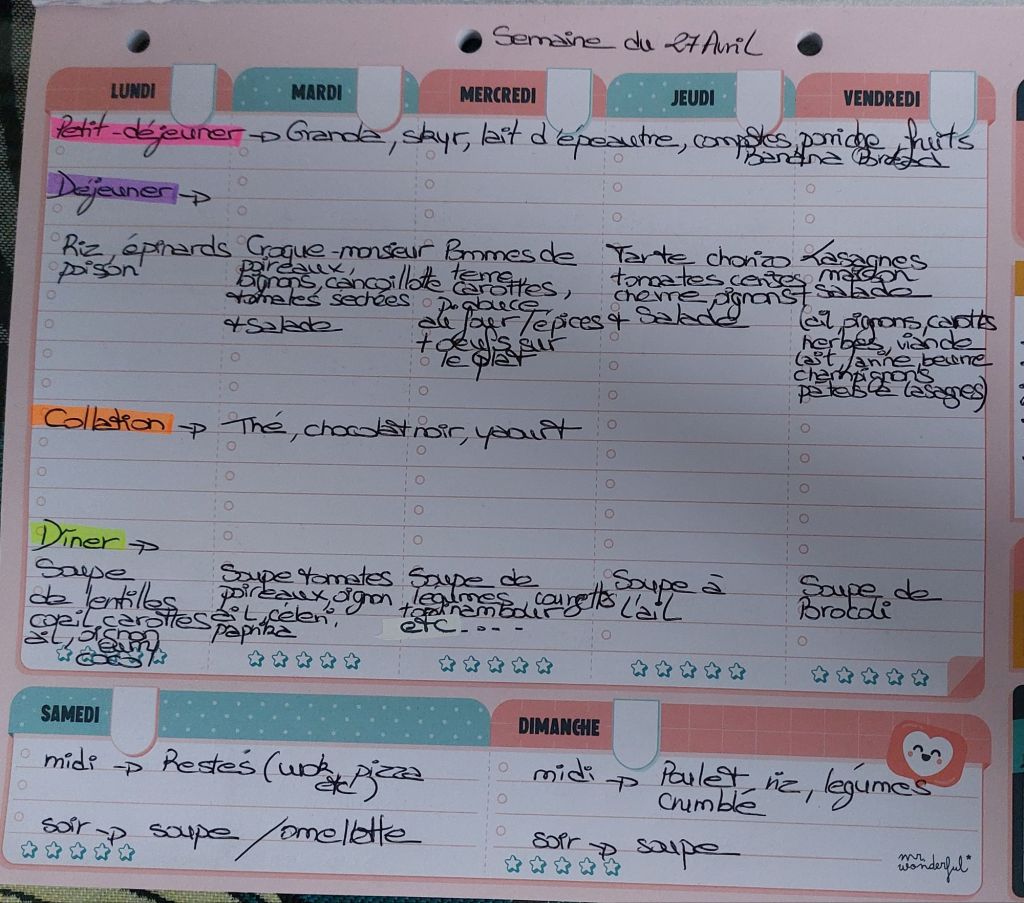 Semaine du 27 Avril
LUNDI MARDI MERCREDI JEUDI VENDREDI
Petit-déjeuner → skyr, lait d'épeautre, compotes, fruits
Banana Bread
Déjeuner →
Riz, épinards
poisson
Croque-monsieur
poireaux,
oignons, cancoillotte
tomates sechées
+ Salade
Pommes de
terre
carottes,
au four / épices
+ oeufs sur
le plat
Tarte chorizo
tomates cerises
chèvre, pignons
+ Salade
Lasagnes
maison
+ salade
(ail, oignons, carottes
herbes, viande
lait, farine beurre
champignons
pates à lasagnes)
Collation → Thé, chocolat noir, yaourt
Dîner →
Soupe
de lentilles
corail, carottes
ail, oignon
curry
coco)
Soupe tomates
poireaux, oignon
ail, céleri,
paprika
Soupe de
légumes courgettes
topinambours
etc....
Soupe à
l'ail
Soupe de
Brocoli
SAMEDI
midi → Restes (wok, pizza
etc)
soir → soupe / omellette
DIMANCHE
midi → Poulet, riz, légumes
crumble
soir → soupe
mr.
wonderful*